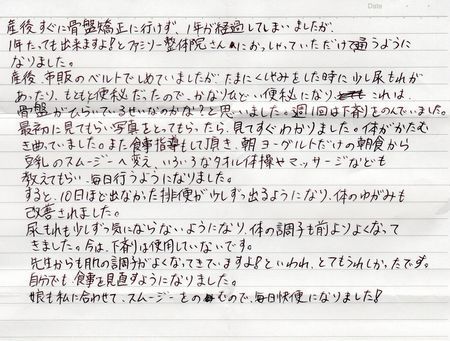 Date
産後、すぐに骨盤矯正に行けず、1年が経過してしまいましたが、
1年たっても出来ますよ!とファミリー整体院さんにおっしゃっていただけて通うように
なりました。
産後、市販のベルトでしめていましたが たまにくしゃみをした時に少し尿もれが
あったり、もともと便秘だったので、かなりひどい便秘になり、これは、
骨盤がひらいているせいなのかな?と思いました。週1回は下剤をのんでいました。
最初に見てもらい写真をとってもらったら、見てすぐわかりました。体がかたむ
き曲っていました。また食事指導もして頂き、朝ヨーグルトだけの朝食から
豆乳のスムージーへ変え、いろいろなタオル体操やマッサージなども
教えてもらい、毎日行うようになりました。
すると、10日ほど出なかった排便が少しずつ出るようになり、体のゆがみも
改善されました。
尿もれも少しずつ気にならないようになり、体の調子も前よりよくなって
きました。今は、下剤は使用していないです。
先生からも肌の調子がよくなってきていますよ!といわれ、とてもうれしかったです。
自分でも、食事を見直すようになりました。
娘も私に合わせて、スムージーをのむので、毎日快便になりました!